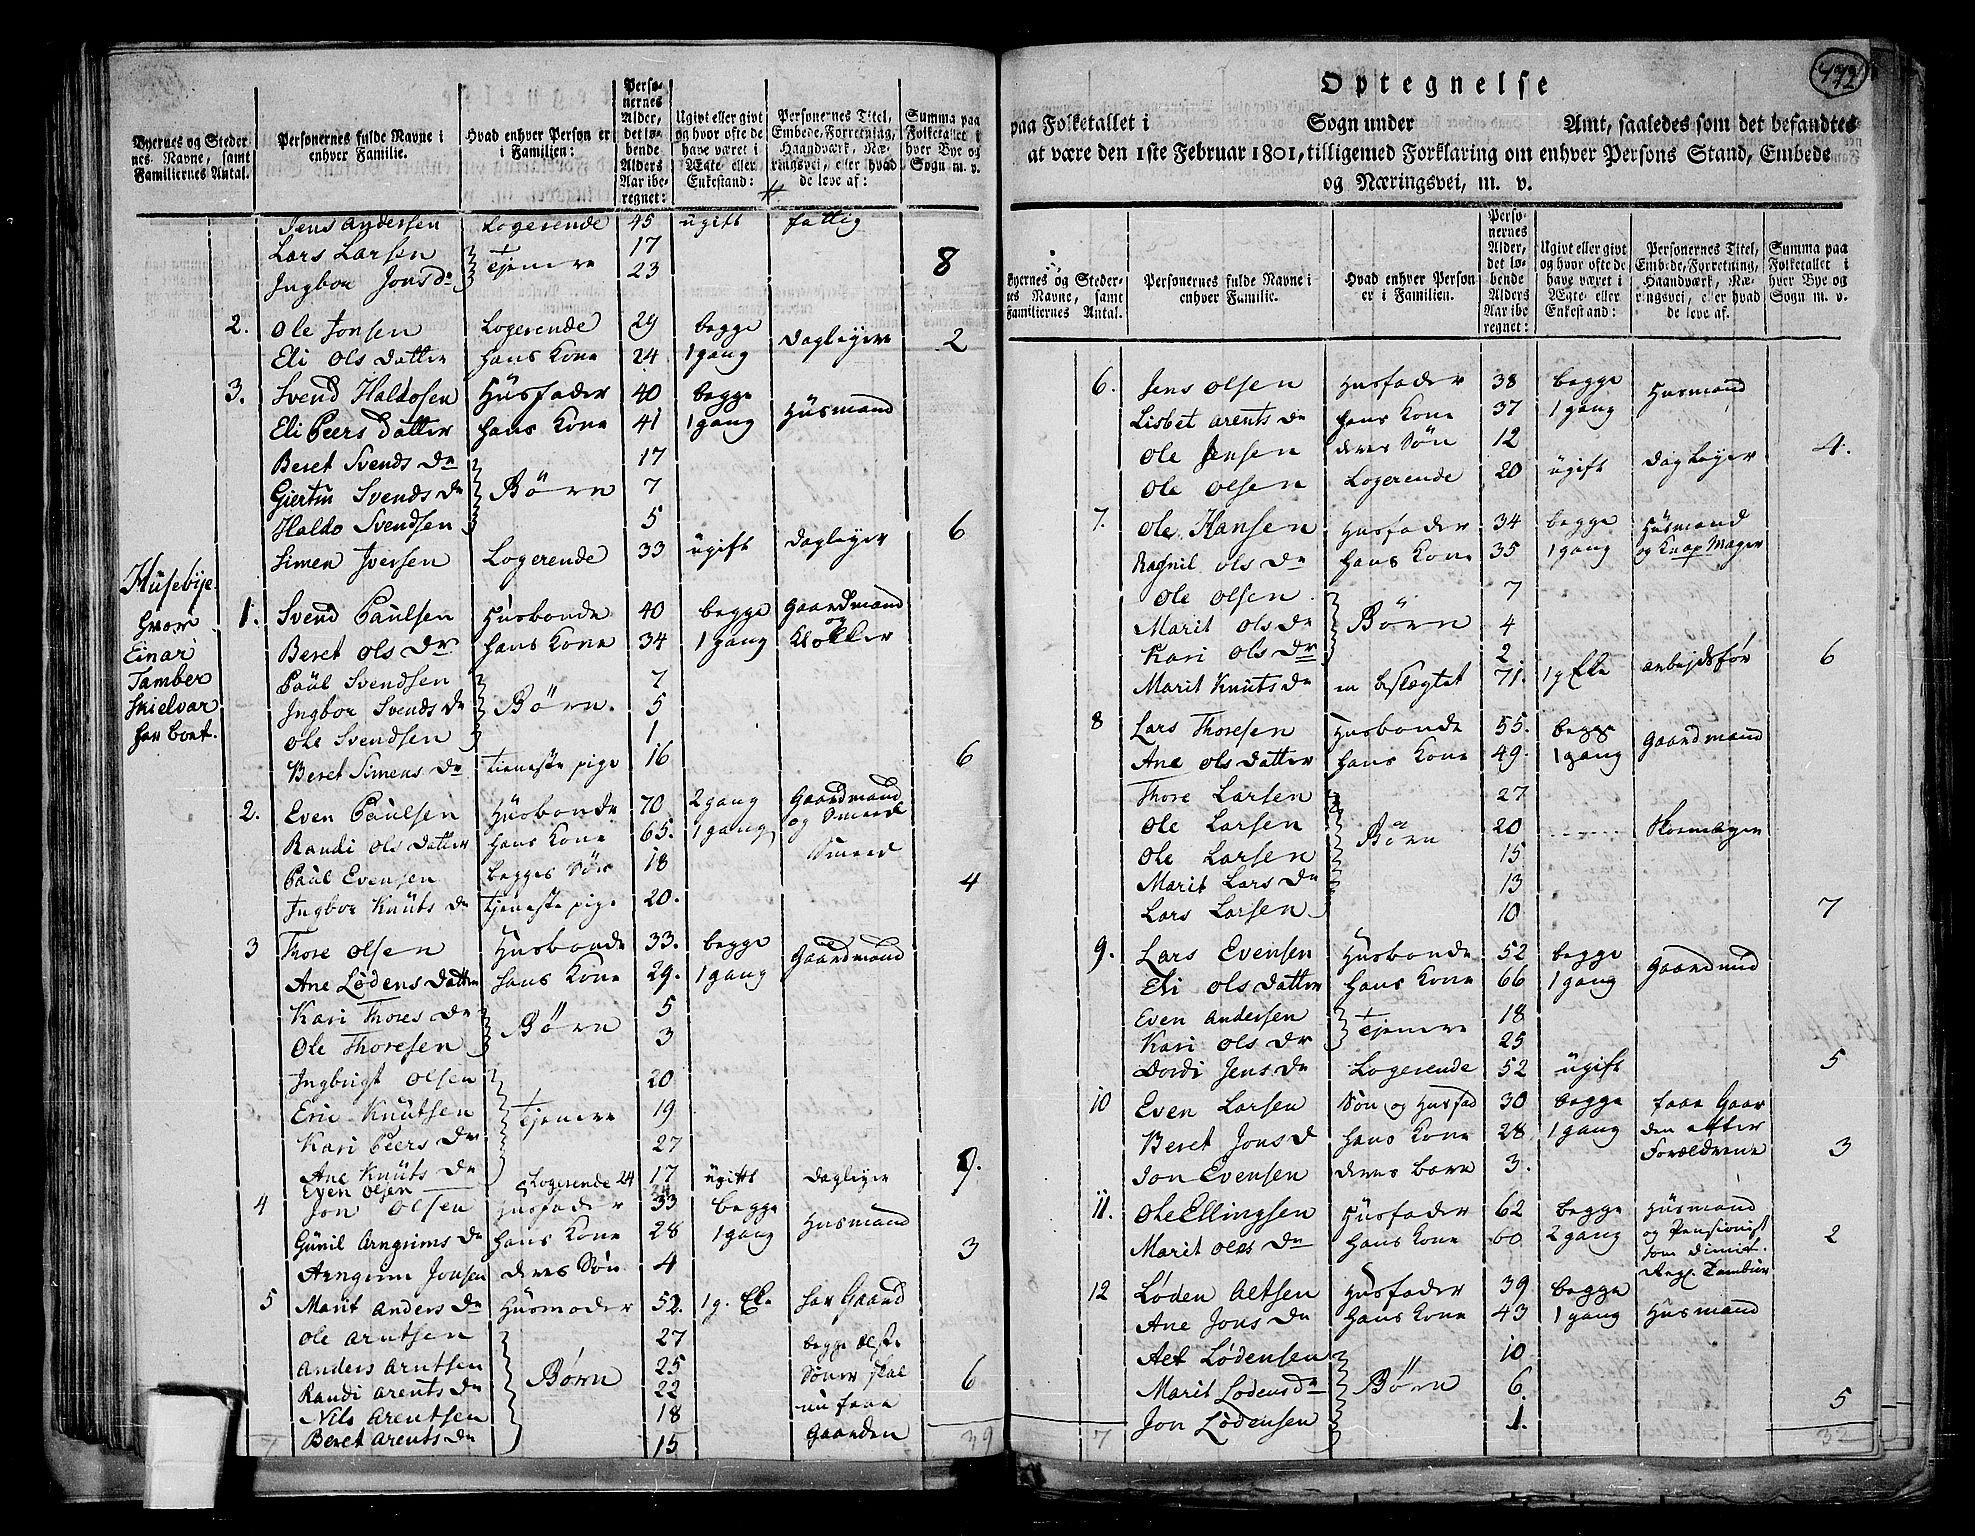 Byernes og Steder-
nes Navne, samt
Familiernes Antal.
Personernes fulde Navne i
enhver Familie.
Hvad enhver Person er
i Familien:
Perso-
nernes
Alder,
det lø-
bende
Alders
Aar ibe-
regnet:
Ugivt eller givt
og hvor ofte de
have været i
Ægte- eller
Enkestand:
Personernes Titel,
Embede, Forretning,
Haandværk, Næ-
ringsvei, eller hvad
de leve af:
Summa paa
Folketallet i
hver Bye og
Sogn m. v.
Jens Andersen Logerende 45 ugift fattig
Lars Larsen } Tjenere 17
Ingbor Jons Dr 23 8
2. Ole Jonsen Logerende 29 begge Dagleyere
Eli Ols Datter Hans Kone 24 1 gang 2
3. Svend Haldosen Husfader 40 begge Husmand
Eli Peers Datter Hans Kone 41 1 gang
Beret Svends Dr 17
Giertru Svends Dr } Børn 7
Haldo Svendsen 5 6
Simen Iversen Logerende 33 ugift Dagleyer
Husebye
hvor
Einar
Tamber
Skielvar
har boet.
1. Svend Paulsen Husbonde 40 begge Gaardmand
og
Beret Ols Dr Hans Kone 34 1 gang Klokker
Paul Svendsen 7
Ingbor Svends Dr } Børn. 5
Ole Svendsen 1.
Beret Simens Dr tienestepige 16 6
2. Even Paulsen Husbonde 70 2 gang Gaardmand
og Smeed
Randi Ols Datter Hans Kone 65. 1 gang
Paul Evensen begges Søn 18 Smeed
Ingbor Knuts Dr tjenestepige 20. 4
3 Thore Olsen Husbonde 33. begge Gaardmand
Ane Lødens Datter Hans Kone 29. 1 gang
Kari Thores Dr } Børn 5
Ole Thoresen 3
Ingbrigt Olsen 20
Eric Knutsen } Tjenere 19
Kari Peers Dr 27
Ane Knuts Dr 17 9.
Even Olsen Logerende 24 ugift Dagleyer
4 Jon Olsen Husfader 33 begge Husmand
Gunil Arngrims Dr Hans Kone 28 1 gang
Arngrim Jonsen deres Søn 4 3
5 Marit Anders Dr Husmoder 52. 1 g. Eke har Gaard
Ole Arntsen 27 begge ælste
Anders Arntsen 25 Sønner skal
Randi Arents Dr } Børn 22 6
Nils Arentsen 18 nu faae
Beret Arents Dr 15 Gaarden
7 39
472
Optegnelse
paa Folketallet i Sogn under Amt, saaledes som det befandtes
at være den 1ste Februar 1801, tilligemed Forklaring om enhver Persons Stand, Embede
og Næringsvei, m. v.
Byernes og Steder-
nes Navne, samt
Familiernes Antal.
Personernes fulde Navne i
enhver Familie.
Hvad enhver Person
er i Familien.
Perso-
nernes
Alder,
det lø-
bende
Alders
Aar ibe-
regnet:
Ugivt eller givt
og hvor ofte de
have været i
Ægte- eller
Enkestand:
Personernes Titel,
Embede, Forretning,
Haandværk, Næ-
ringsvei, eller hvad
de leve af.
Summa paa
Folketallet i
hver Bye og
Sogn m. v.
6. Jens Olsen Husfader 38 begge Husmand
Lisbet Arents Dr Hans Kone 37 1 gang
Ole Jensen deres Søn 12
Ole Olsen Logerende 20 ugift Dagleyer 4.
7. Ole Hansen Husfader 34 begge Husmand
Ragnil Ols Dr Hans Kone 35 1 gang og Knap Mager
Ole Olsen 7
Marit Ols Dr } Børn 4
Kari Ols Dr 2
Marit Knuts Dr en beslægtet 71. 1 g Eke arbejdsfør 6
8 Lars Thoresen Husbonde 55. begge Gaardmand
Ane Ols Datter Hans Kone 49. 1 gang
Thore Larsen 27
Ole Larsen } Børn 20 Skomager
Ole Larsen 15
Marit Lars Dr 13
Lars Larsen 10 7
9. Lars Evensen Husbonde 52 begge Gaardmand
Eli Ols Datter Hans Kone 66 1 gang
Even Andersen } Tjenere 18
Kari Ols Dr 25
Dordi Jens Dr Logerende 52 ugift 5
10 Even Larsen Søn og Husfad 30 begge faae Gaar
Beret Jons D Hans Kone 28 1 gang den efter
Jon Evensen deres barn 3. Forældrene 3
11. Ole Ellingsen Husfader 62 begge Husmand
Marit Oles Dr Hans Kone 60 2 gang og Pensionist 2
som dimit.
Regl. Tambur
12 Løden Aetsen Husfader 39 begge
Ane Jons Dr Hans Kone 43 1 gang Husmand
Aet Lødensen 10
Marit Lødens Dr } Børn 6
Jon Lødensen 1. 5
7 32